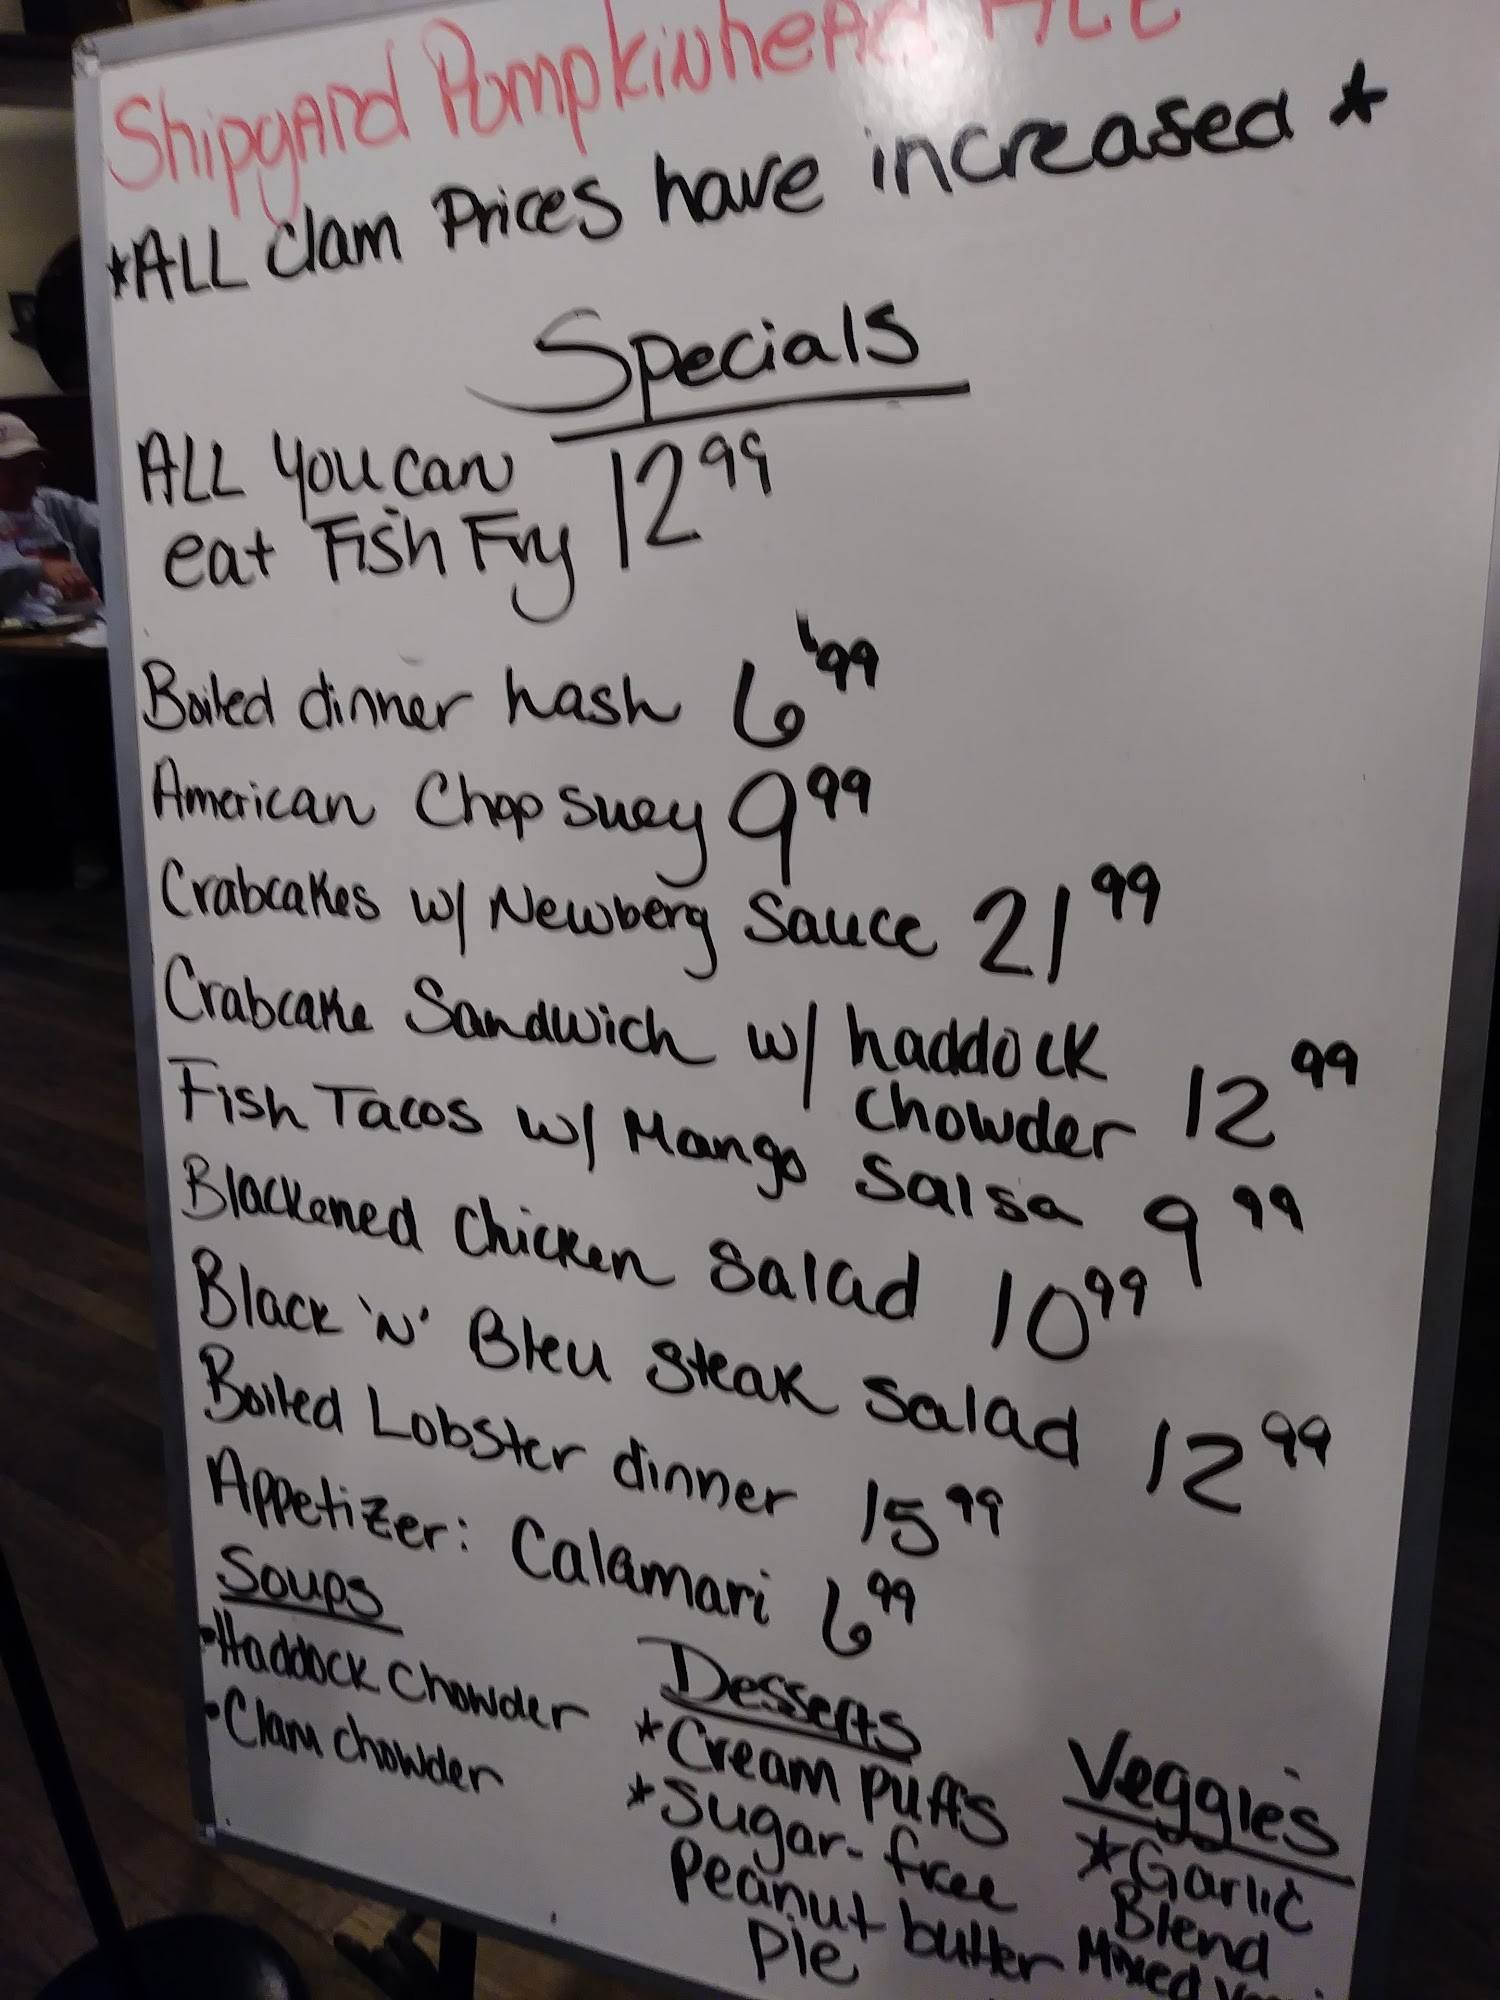 Shipyard Pumpkinhead ALE
*ALL clam Prices have increased *
Specials
ALL you can
eat Fish Fry 12 99
Boiled dinner hash 6 99
American Chop suey 9 99
Crabcakes w/ Newberg Sauce 21 99
Crabcake Sandwich w/ haddock
chowder 12 99
Fish Tacos w/ Mango Salsa 9 99
Blackened Chicken Salad 10 99
Black 'N' Bleu Steak Salad 12 99
Boiled Lobster dinner 15 99
Appetizer: Calamari 6 99
Soups
•Haddock Chowder
•Clam chowder
Desserts
*Cream puffs
*Sugar-free
Peanut butter
Pie
Veggies
*Garlic
Blend
Mixed